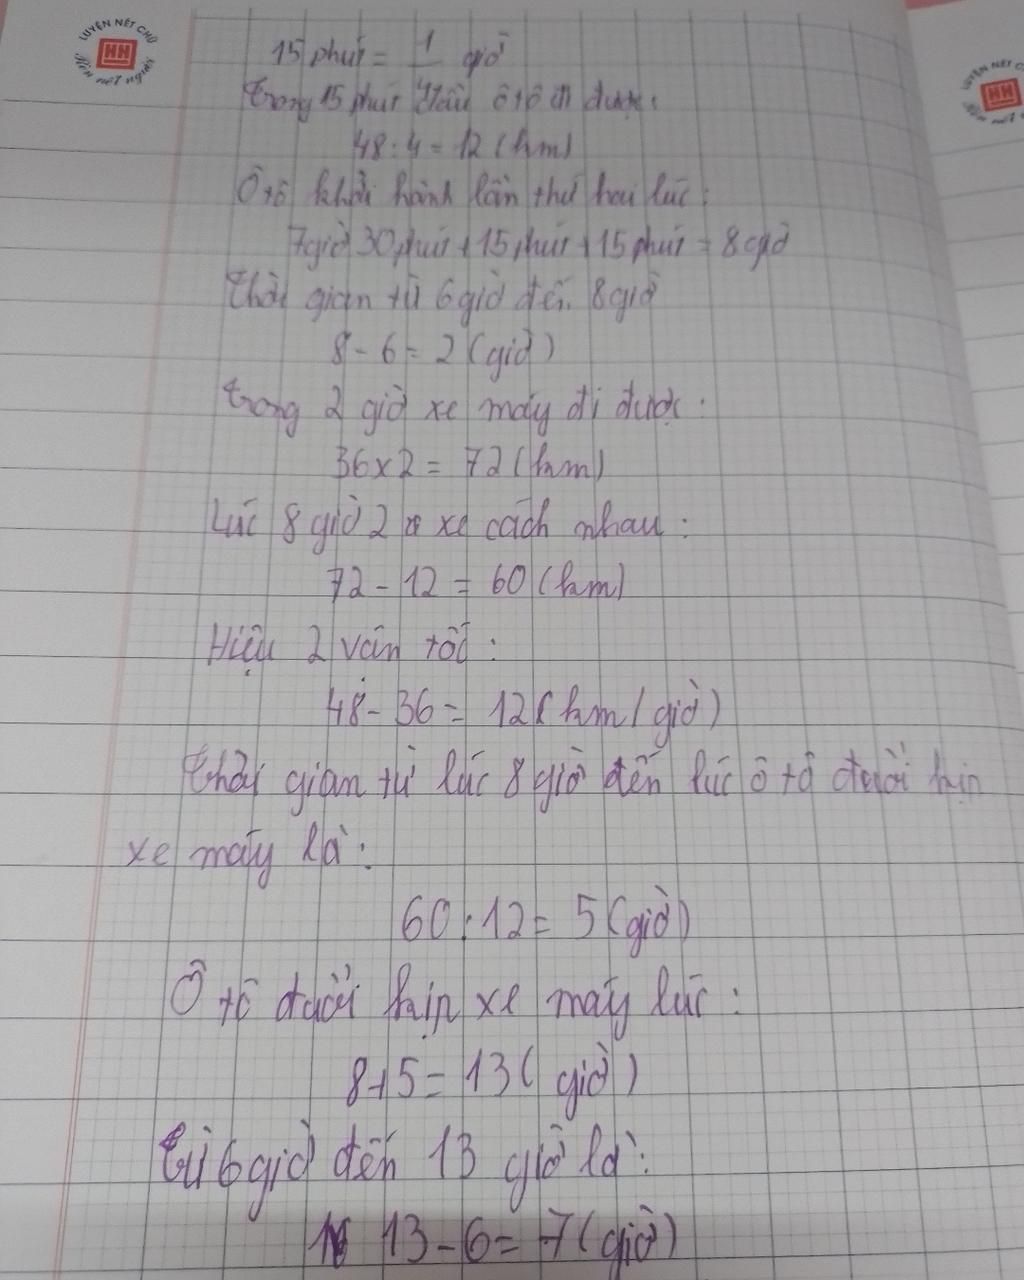 LUYỆN NÉT CHỮ
HH
Rèn nết người
LUYỆN NÉT
HH
15 phút = 1/4 giờ
Trong 15 phút đầu ô tô đi được:
48 : 4 = 12 (km)
Ô tô khởi hành lần thứ hai lúc:
7 giờ 30 phút + 15 phút + 15 phút = 8 giờ
Thời gian từ 6 giờ đến 8 giờ
8 - 6 = 2 (giờ)
Trong 2 giờ xe máy đi được:
36 x 2 = 72 (km)
Lúc 8 giờ 2 xe cách nhau:
72 - 12 = 60 (km)
Hiệu 2 vân tốc:
48 - 36 = 12 (km / giờ)
Thời gian từ lúc 8 giờ đến lúc ô tô đuổi kịp
xe máy là:
60 : 12 = 5 (giờ)
Ô tô đuổi kịp xe máy lúc:
8 + 5 = 13 (giờ)
Từ 6 giờ đến 13 giờ là:
13 - 6 = 7 (giờ)